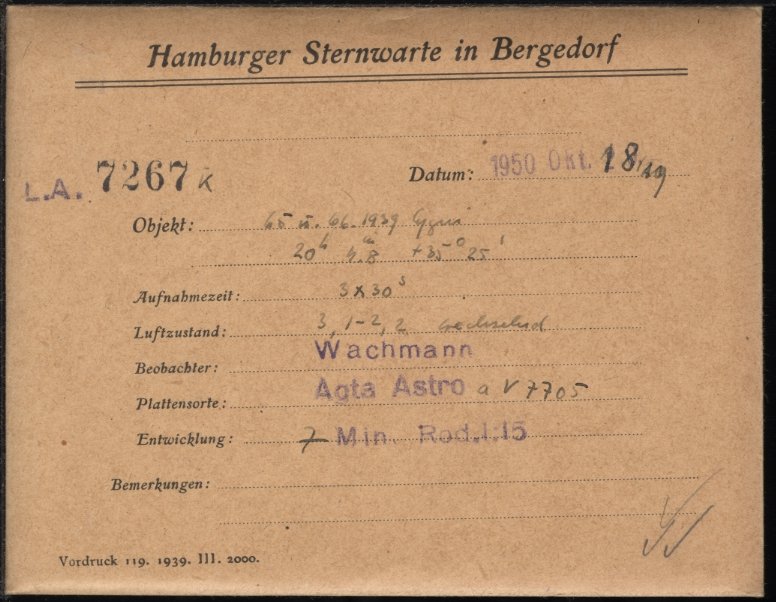 Hamburger Sternwarte in Bergedorf
L.A. 7267 K
Datum: 1950 Okt. 18/19
Objekt: 65 u. 66. 1939 Cygni
20h 4.m8 +35° 25'
Aufnahmezeit: 3x30s
Luftzustand: 3, 1-2, 2 wechselnd
Beobachter: Wachmann
Plattensorte: Agfa Astro a V 7705
Entwicklung: 7 Min. Rod.1:15
Bemerkungen:
Vordruck 119. 1939. III. 2000.